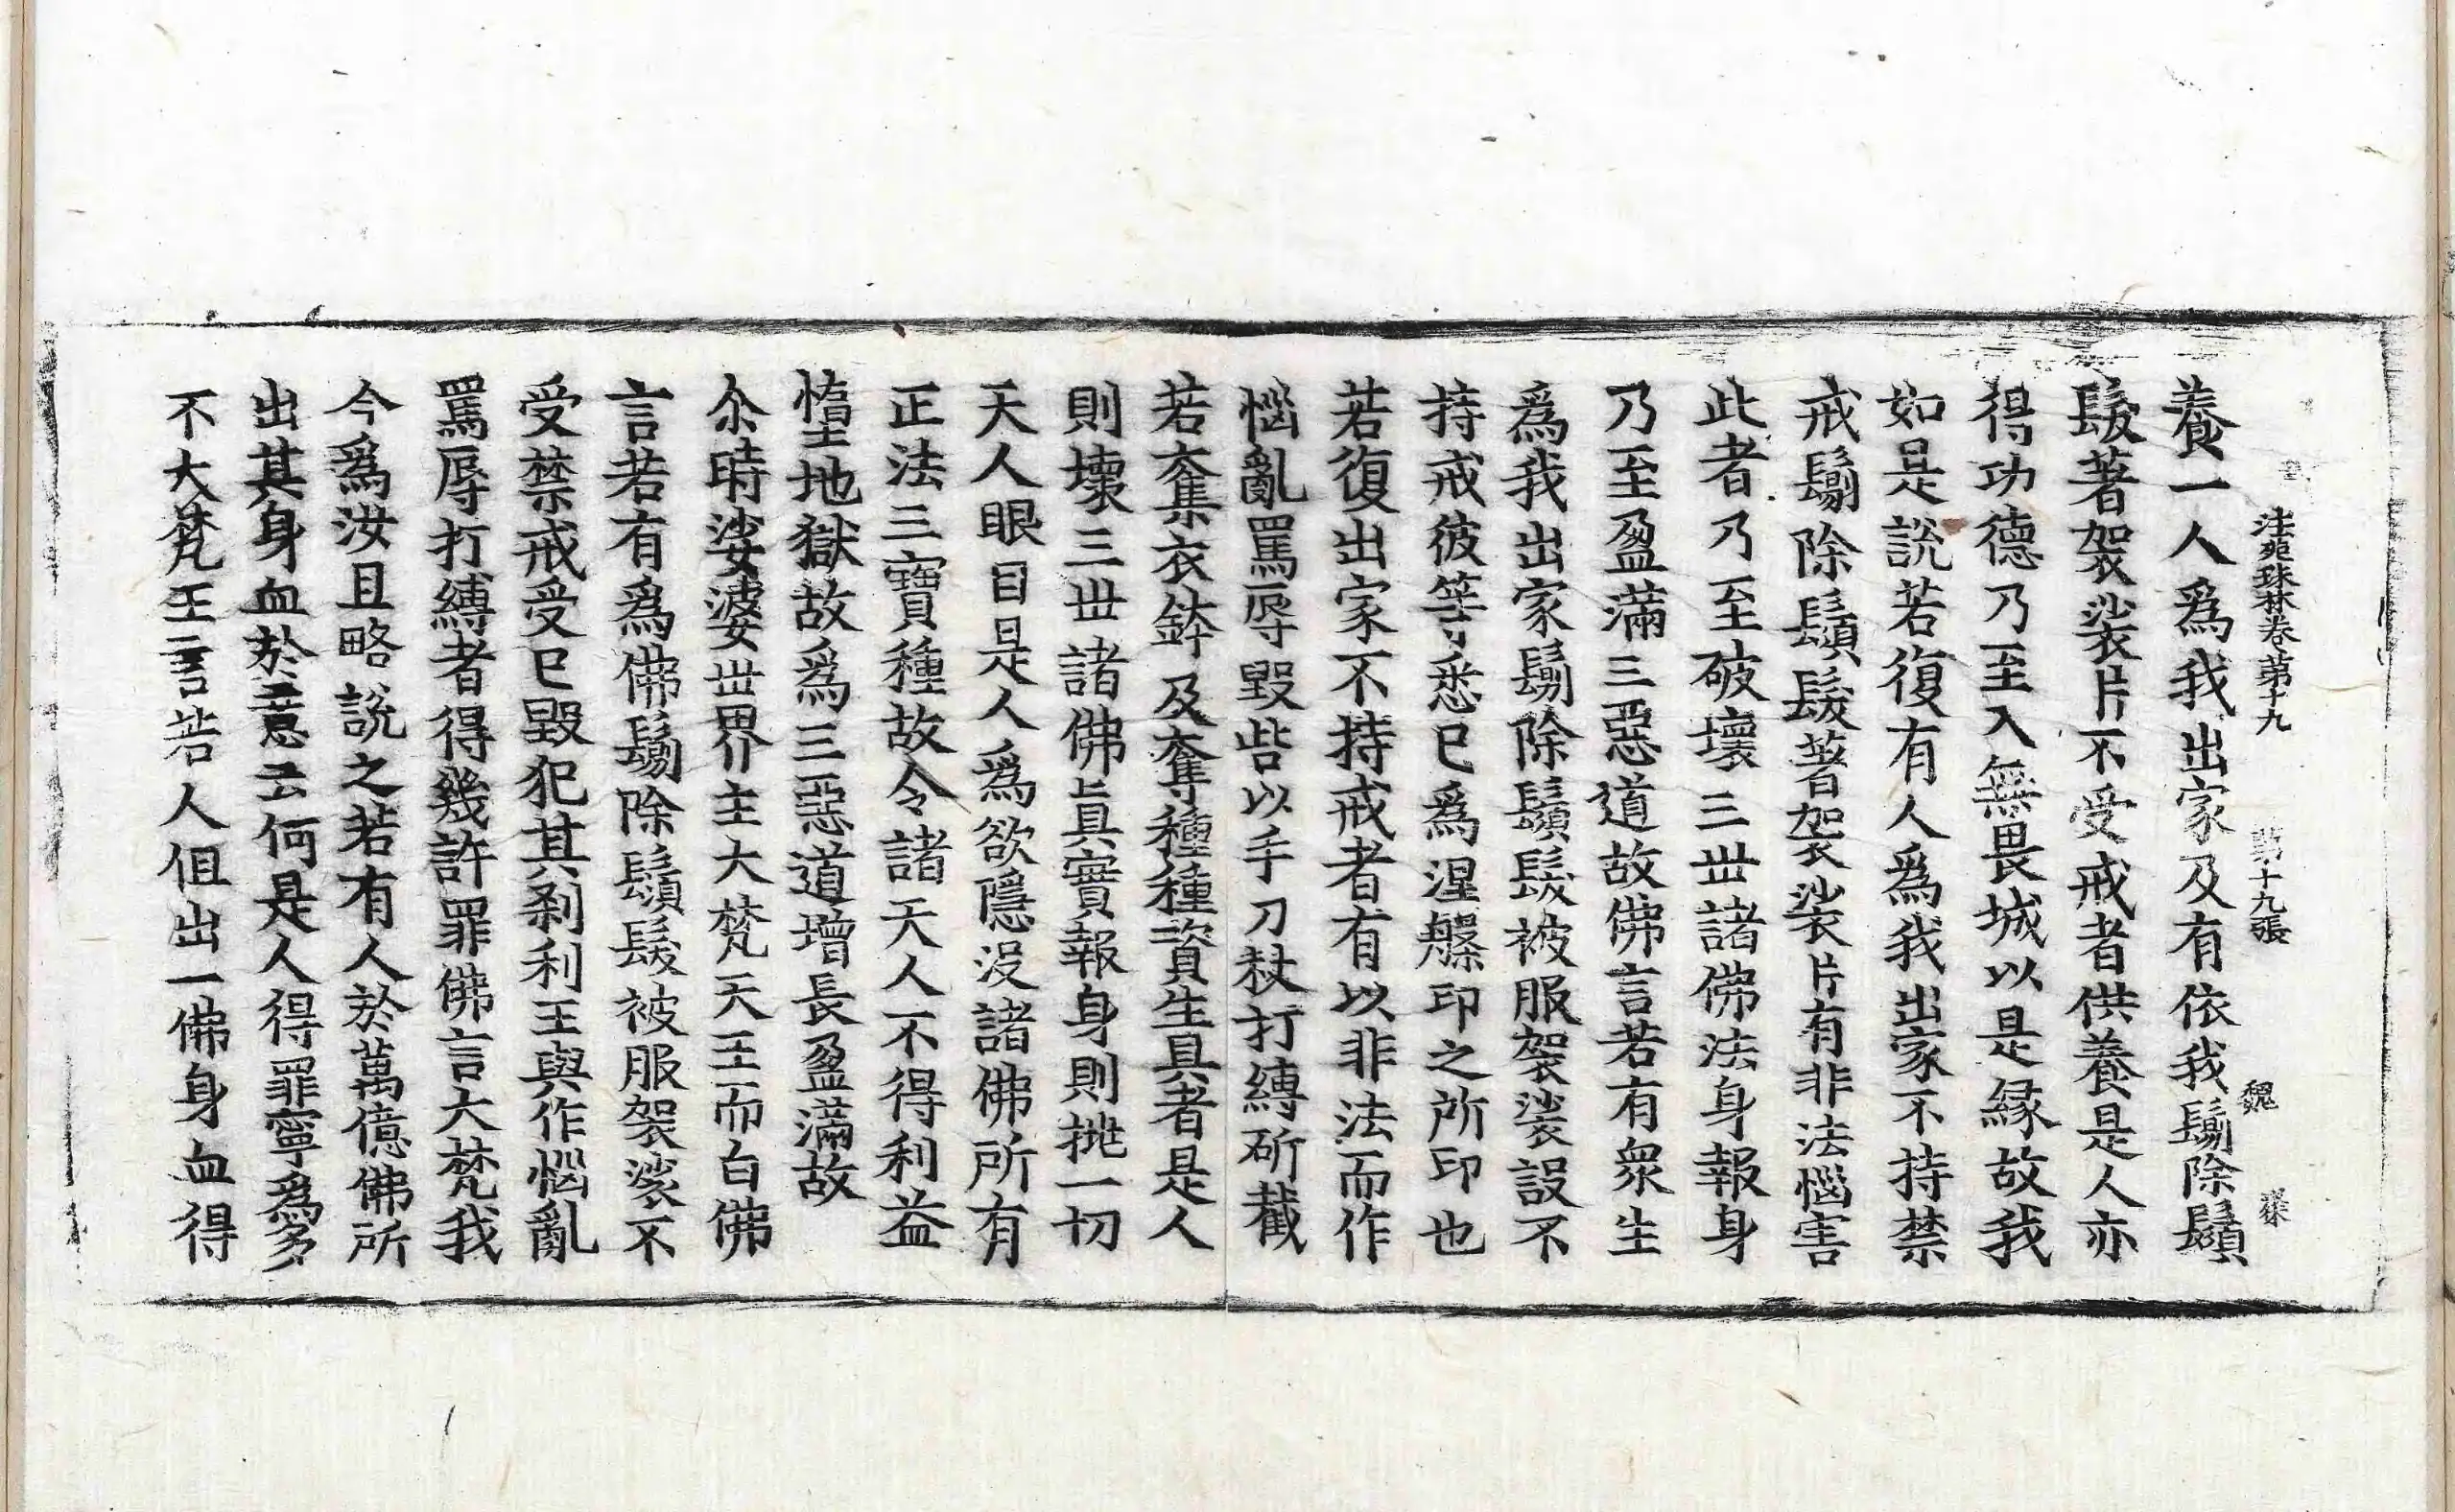 法苑珠林卷第十九 第十九張 魏
養一人爲我出家及有依我鬀除鬚
髮著袈裟片不受戒者供養是人亦
得功德乃至入無畏城以是縁故我
如是說若復有人爲我出家不持禁
戒鬀除鬚髮著袈裟片有非法惱害
此者乃至破壞三世諸佛法身報身
乃至盈滿三惡道故佛言若有衆生
爲我出家鬀除鬚髮被服袈裟設不
持戒彼等悉已爲涅槃印之所印也
若復出家不持戒者有以非法而作
惱亂罵辱毀呰以手刀杖打縛斫截
若奪衣鉢及奪種種資生具者是人
則壞三世諸佛眞實報身則挑一切
天人眼目是人爲欲隱沒諸佛所有
正法三寶種故令諸天人不得利益
墮地獄故爲三惡道增長盈滿故
尒時娑婆世界主大梵天王而白佛
言若有爲佛鬀除鬚髮被服袈裟不
受禁戒受已毀犯其刹利王與作惱亂
罵辱打縛者得幾許罪佛言大梵我
今爲汝且略說之若有人於萬億佛所
出其身血於意云何是人得罪寧爲多
不大梵王言若人但出一佛身血得